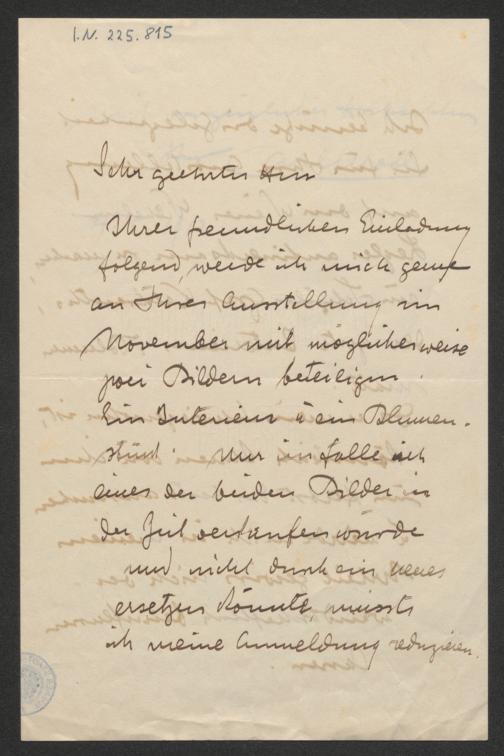 I.N. 225.815
Sehr geehrter Herr
Ihrer freundlichen Einladung
folgend, werde ich mich gerne
an Ihrer Ausstellung im
November mit möglicherweise
zwei Bildern beteiligen.
Ein Interieur u ein Blumen-
stück. Nur im falle ich
eines der beiden Bilder in
der Zeit verkaufen würde
und nicht durch ein neues
ersetzen könnte, müsste
ich meine Anmeldung reduzieren.